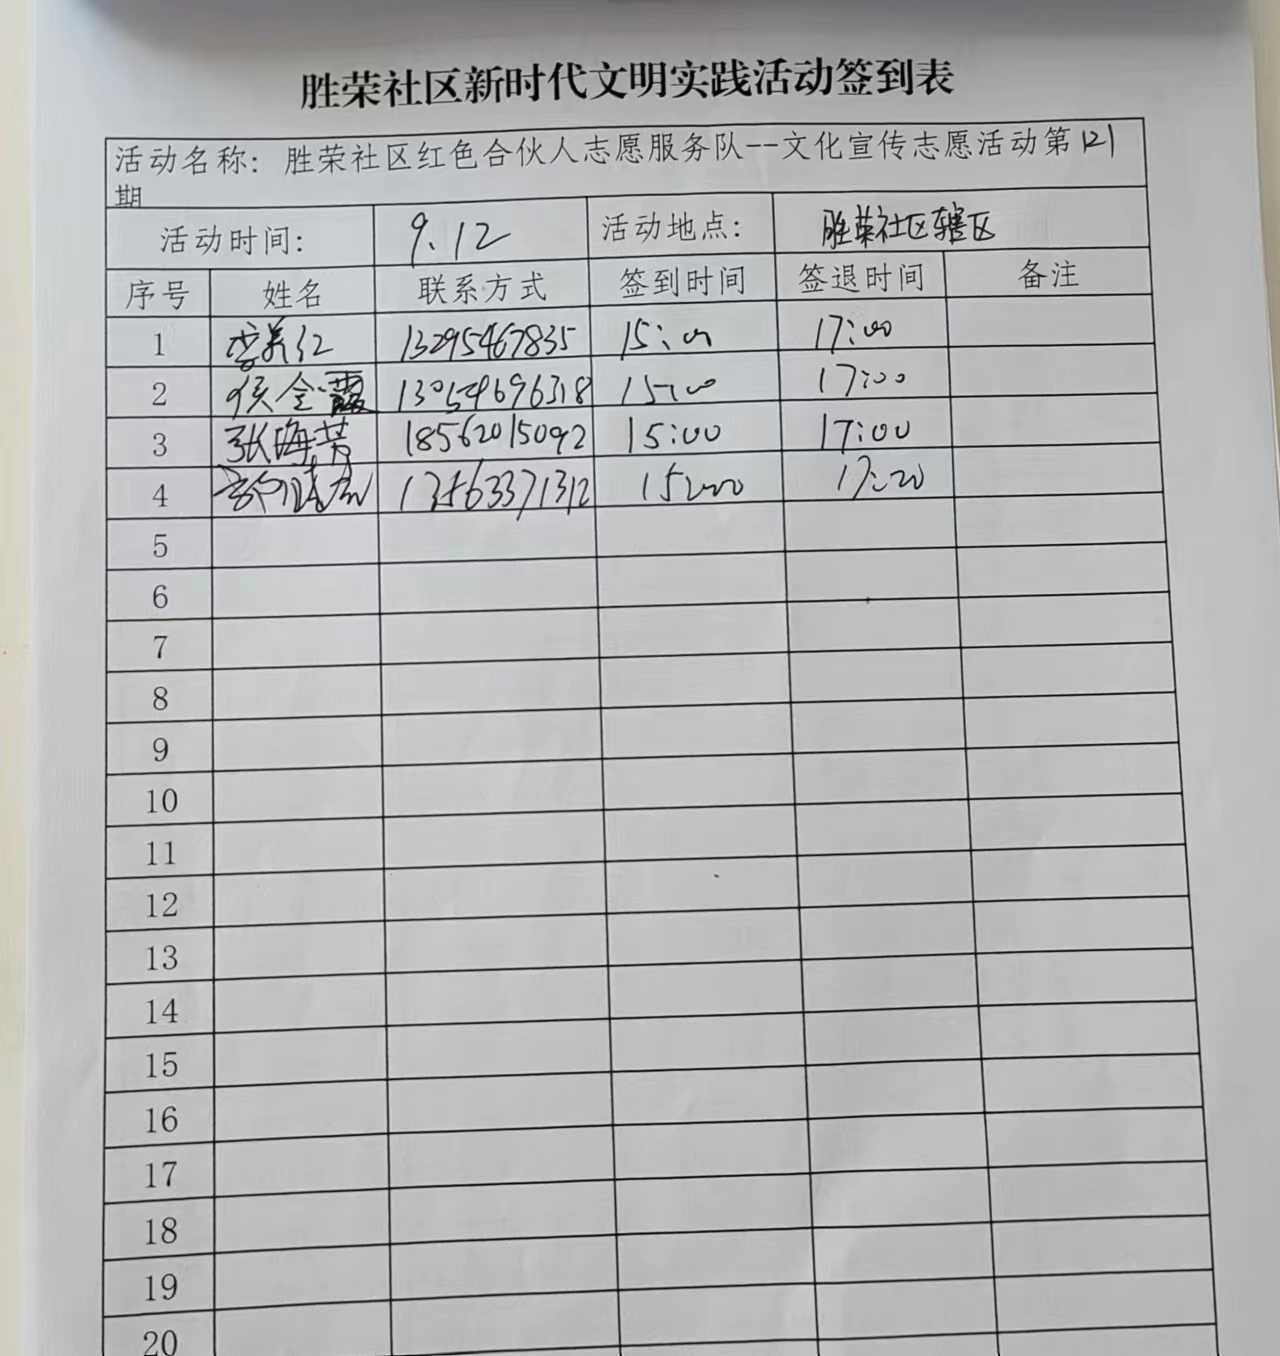 胜荣社区新时代文明实践活动签到表
活动名称：胜荣社区红色合伙人志愿服务队--文化宣传志愿活动第121
期
活动时间： 9.12 活动地点： 胜荣社区辖区
序号 姓名 联系方式 签到时间 签退时间 备注
1 13295467835 15:00 17:00
2 侯金霞 13054696318 15:00 17:00
3 张海芳 18562015092 15:00 17:00
4 13563371312 15:00
5
6
7
8
9
10
11
12
13
14
15
16
17
18
19
20